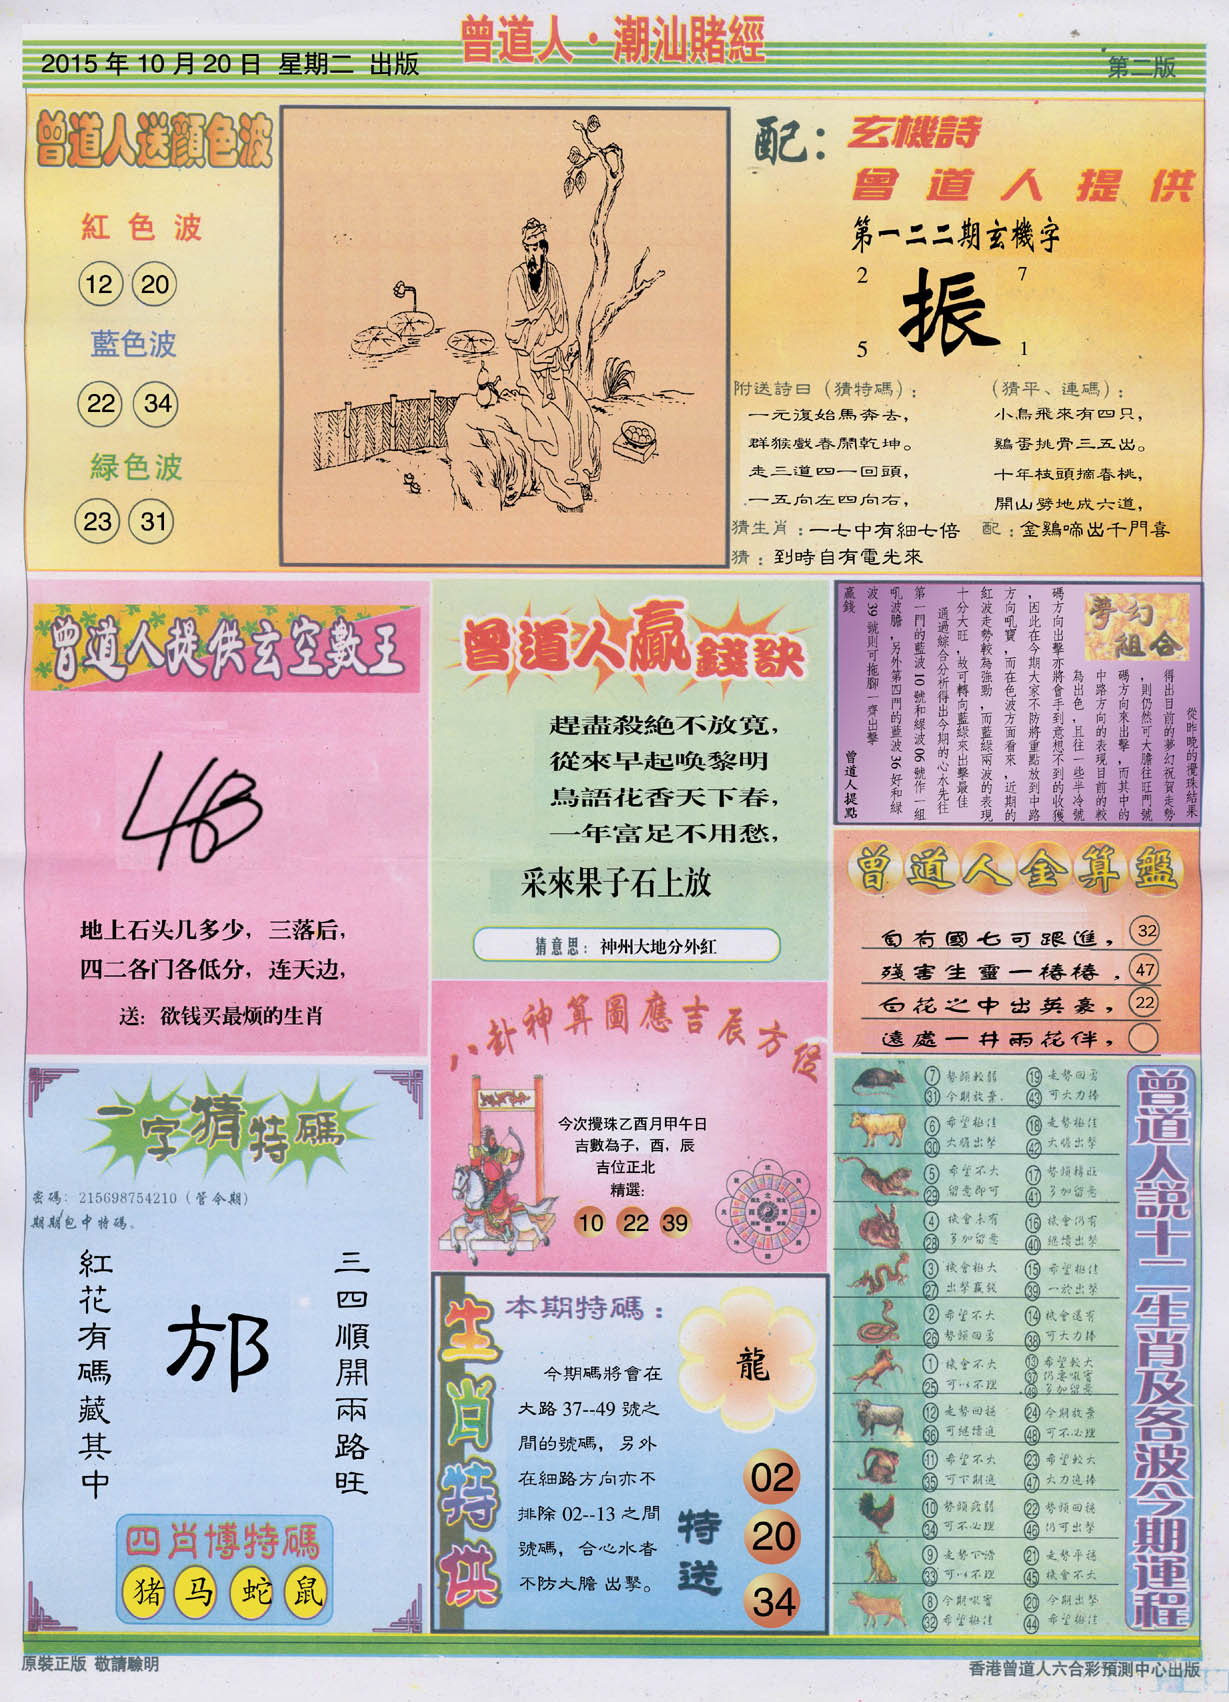 曾道人·潮汕賭經
2015 年 10 月 20 日 星期二 出版
第二版
曾道人送顔色波
紅色波
12 20
藍色波
22 34
緑色波
23 31
配：
玄機詩
曾道人提供
第一二二期玄機字
2 7
振
5 1
附送詩曰（猜特碼）：
一元復始馬奔去，
群猴戲春鬧乾坤。
走三道四一回頭，
一五向左四向右，
（猜平、連碼）：
小鳥飛來有四只，
鷄蛋挑骨三五出。
十年枝頭摘春桃，
開山劈地成六道，
猜生肖：一七中有細七倍
配：金鷄啼出千門喜
猜：到時自有電光來
曾道人提供玄空數王
地上石头几多少，三落后，
四二各门各低分，连天边，
送：欲钱买最烦的生肖
曾道人贏錢訣
趕盡殺絕不放寬，
從來早起喚黎明
鳥語花香天下春，
一年富足不用愁，
采來果子石上放
猜意思：神州大地分外紅
夢幻
組合
從昨晚的攪珠結果
得出目前的夢幻祝賀走勢
，則仍然可大膽往旺門號
碼方向來出擊，而其中的
中路方向的表現目前的較
為出色，且往一些半冷號
碼方向出擊亦將會手到意想不到的收獲
，因此在今期大家不防將重點放到中路
方向吼寶，而在色波方面看來，近期的
紅波走勢較為強勁，而藍綠兩波的表現
十分大旺，故可轉向藍綠來出擊最佳
通過綜合分析得出今期的心水先往
第一門的藍波 10 號和綠波 06 號作一組
吼波膽，另外第四門的藍波 36 好和綠
波 39 號則可拖腳一齊出擊
贏錢
曾道人提點
曾道人金算盤
自有國七可跟進， 32
殘害生靈一樁樁， 47
白花之中出英豪， 22
遠處一井兩花伴，
八卦神算圖應吉辰方位
今次攪珠乙酉月甲午日
吉數為子，酉，辰
吉位正北
精選：
10 22 39
一字猜特碼
密碼：215698754210（管令期）
期期包中特碼。
紅花有碼藏其中
邡
三四順開兩路旺
四肖博特碼
猪 马 蛇 鼠
生肖特供
本期特碼：
龍
今期碼將會在
大路 37--49 號之
間的號碼，另外
在細路方向亦不
排除 02--13 之間
號碼，合心水者
不防大膽 出擊。
特送
02
20
34
曾道人説十二生肖及各波今期運程
7 勢頭較弱 19 走勢回勇
31 今期放棄 43 可大力捧
6 希望極佳 18 走勢極佳
30 大膽出擊 42 大膽出擊
5 希望不大 17 勢頭轉旺
29 留意即可 41 多加留意
4 機會未有 16 機會仍有
28 多加留意 40 繼續出擊
3 機會極大 15 希望極佳
27 出擊贏錢 39 一於出擊
2 希望不大 14 機會還有
26 勢頭回勇 38 可大力捧
1 機會不大 13 希望較大
25 可以不理 37 仍要吼實
49 多加留意
12 走勢回穩 24 今期放棄
36 可繼續追 48 可不必理
11 希望不大 23 希望較大
35 可下期追 47 大力追捧
10 勢頭疲弱 22 勢頭回穩
34 可不必理 46 仍可出擊
9 走勢下滑 21 走勢平穩
33 可以不理 45 機會不大
8 今期吼實 20 今期出擊
32 希望極佳 44 希望極佳
原裝正版 敬請驗明
香港曾道人六合彩預測中心出版